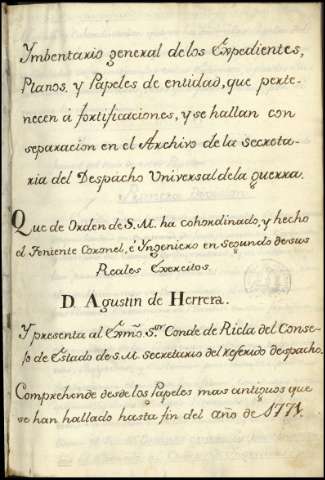 Ymbentario general de los Expedientes,
Planos. y Papeles de entidad, que perte-
necen á fortificaciones, y se hallan con
separacion en el Archivo de la secreta-
ria del Despacho Universal dela guerra.
Que de Orden de S. M. ha cohordinado, y hecho
el Teniente Coronel, é Yngeniero en Segundo desus
Reales Exercitos
D. Agustin de Herrera.
Y presenta al Exmo. S.or Conde de Ricla del Conse-
jo de Estado de S. M. Secretario del referido despacho,
Comprehende desde los Papeles mas antiguos que
se han hallado hasta fin del año de 1771.